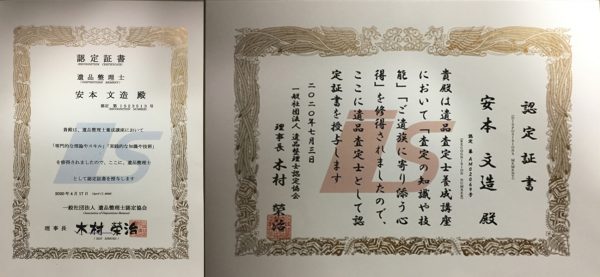 認定証書
遺品整理士
安本 文造 殿
認定 第 IS23513 号
貴殿は、遺品整理士養成講座において
「専門的な理論やスキル」「実践的な知識や技術」
を修得されましたので、ここに、遺品整理士
として認定証書を授与します
2020年4月17日
一般社団法人 遺品整理士認定協会
理事長 木村 榮治
認定証書
認定 第 AM02069号
安本 文造 殿
貴殿は遺品査定士養成講座
において「査定の知識や技
能」「ご遺族に寄り添う心
得」を修得されましたので、
ここに遺品査定士として認
定証書を授与します
二〇二〇年七月三日
一般社団法人 遺品整理士認定協会
理事長 木村 榮治